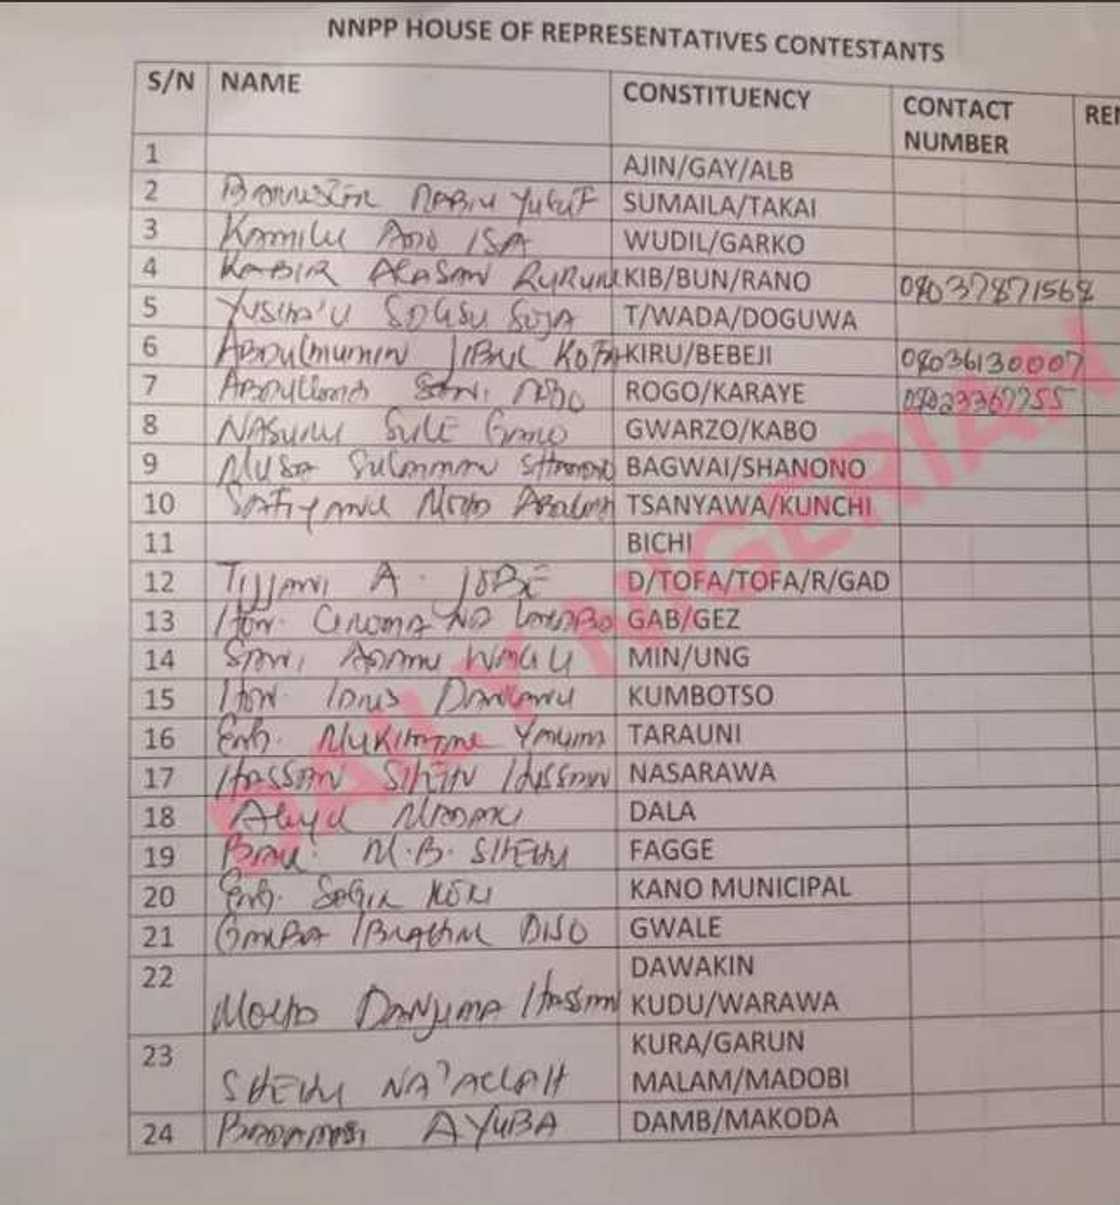 NNPP HOUSE OF REPRESENTATIVES CONTESTANTS
S/N NAME CONSTITUENCY CONTACT NUMBER
1 AJIN/GAY/ALB
2 BARRISTER NABIU YUSUF SUMAILA/TAKAI
3 KAMILU ADO ISA WUDIL/GARKO
4 KABIR ALASAN RURUM KIB/BUN/RANO 08037871568
5 T/WADA/DOGUWA
6 ABDULMUMIN JIBRIL KOFA KIRU/BEBEJI 08036130007
7 SANI ROGO/KARAYE
8 SULE GWARZO/KABO
9 MUSA SULAIMAN SHANONO BAGWAI/SHANONO
10 MOHD TSANYAWA/KUNCHI
11 BICHI
12 TIJJANI A. JOBE D/TOFA/TOFA/R/GAD
13 HON. GAB/GEZ
14 SANI ADAMU WAKILI MIN/UNG
15 HON. IDRIS DANKAWU KUMBOTSO
16 ENG. TARAUNI
17 HASSAN HUSSAIN NASARAWA
18 ALIYU MADAKI DALA
19 M.B. SHEHU FAGGE
20 ENG. SAGIR KOKI KANO MUNICIPAL
21 GARBA IBRAHIM DISO GWALE
22 DAWAKIN
MOHD DANJUMA HASSAN KUDU/WARAWA
23 KURA/GARUN
SHEHU NA'ALLAH MALAM/MADOBI
24 BADAMASI AYUBA DAMB/MAKODA
DAILY NIGERIAN